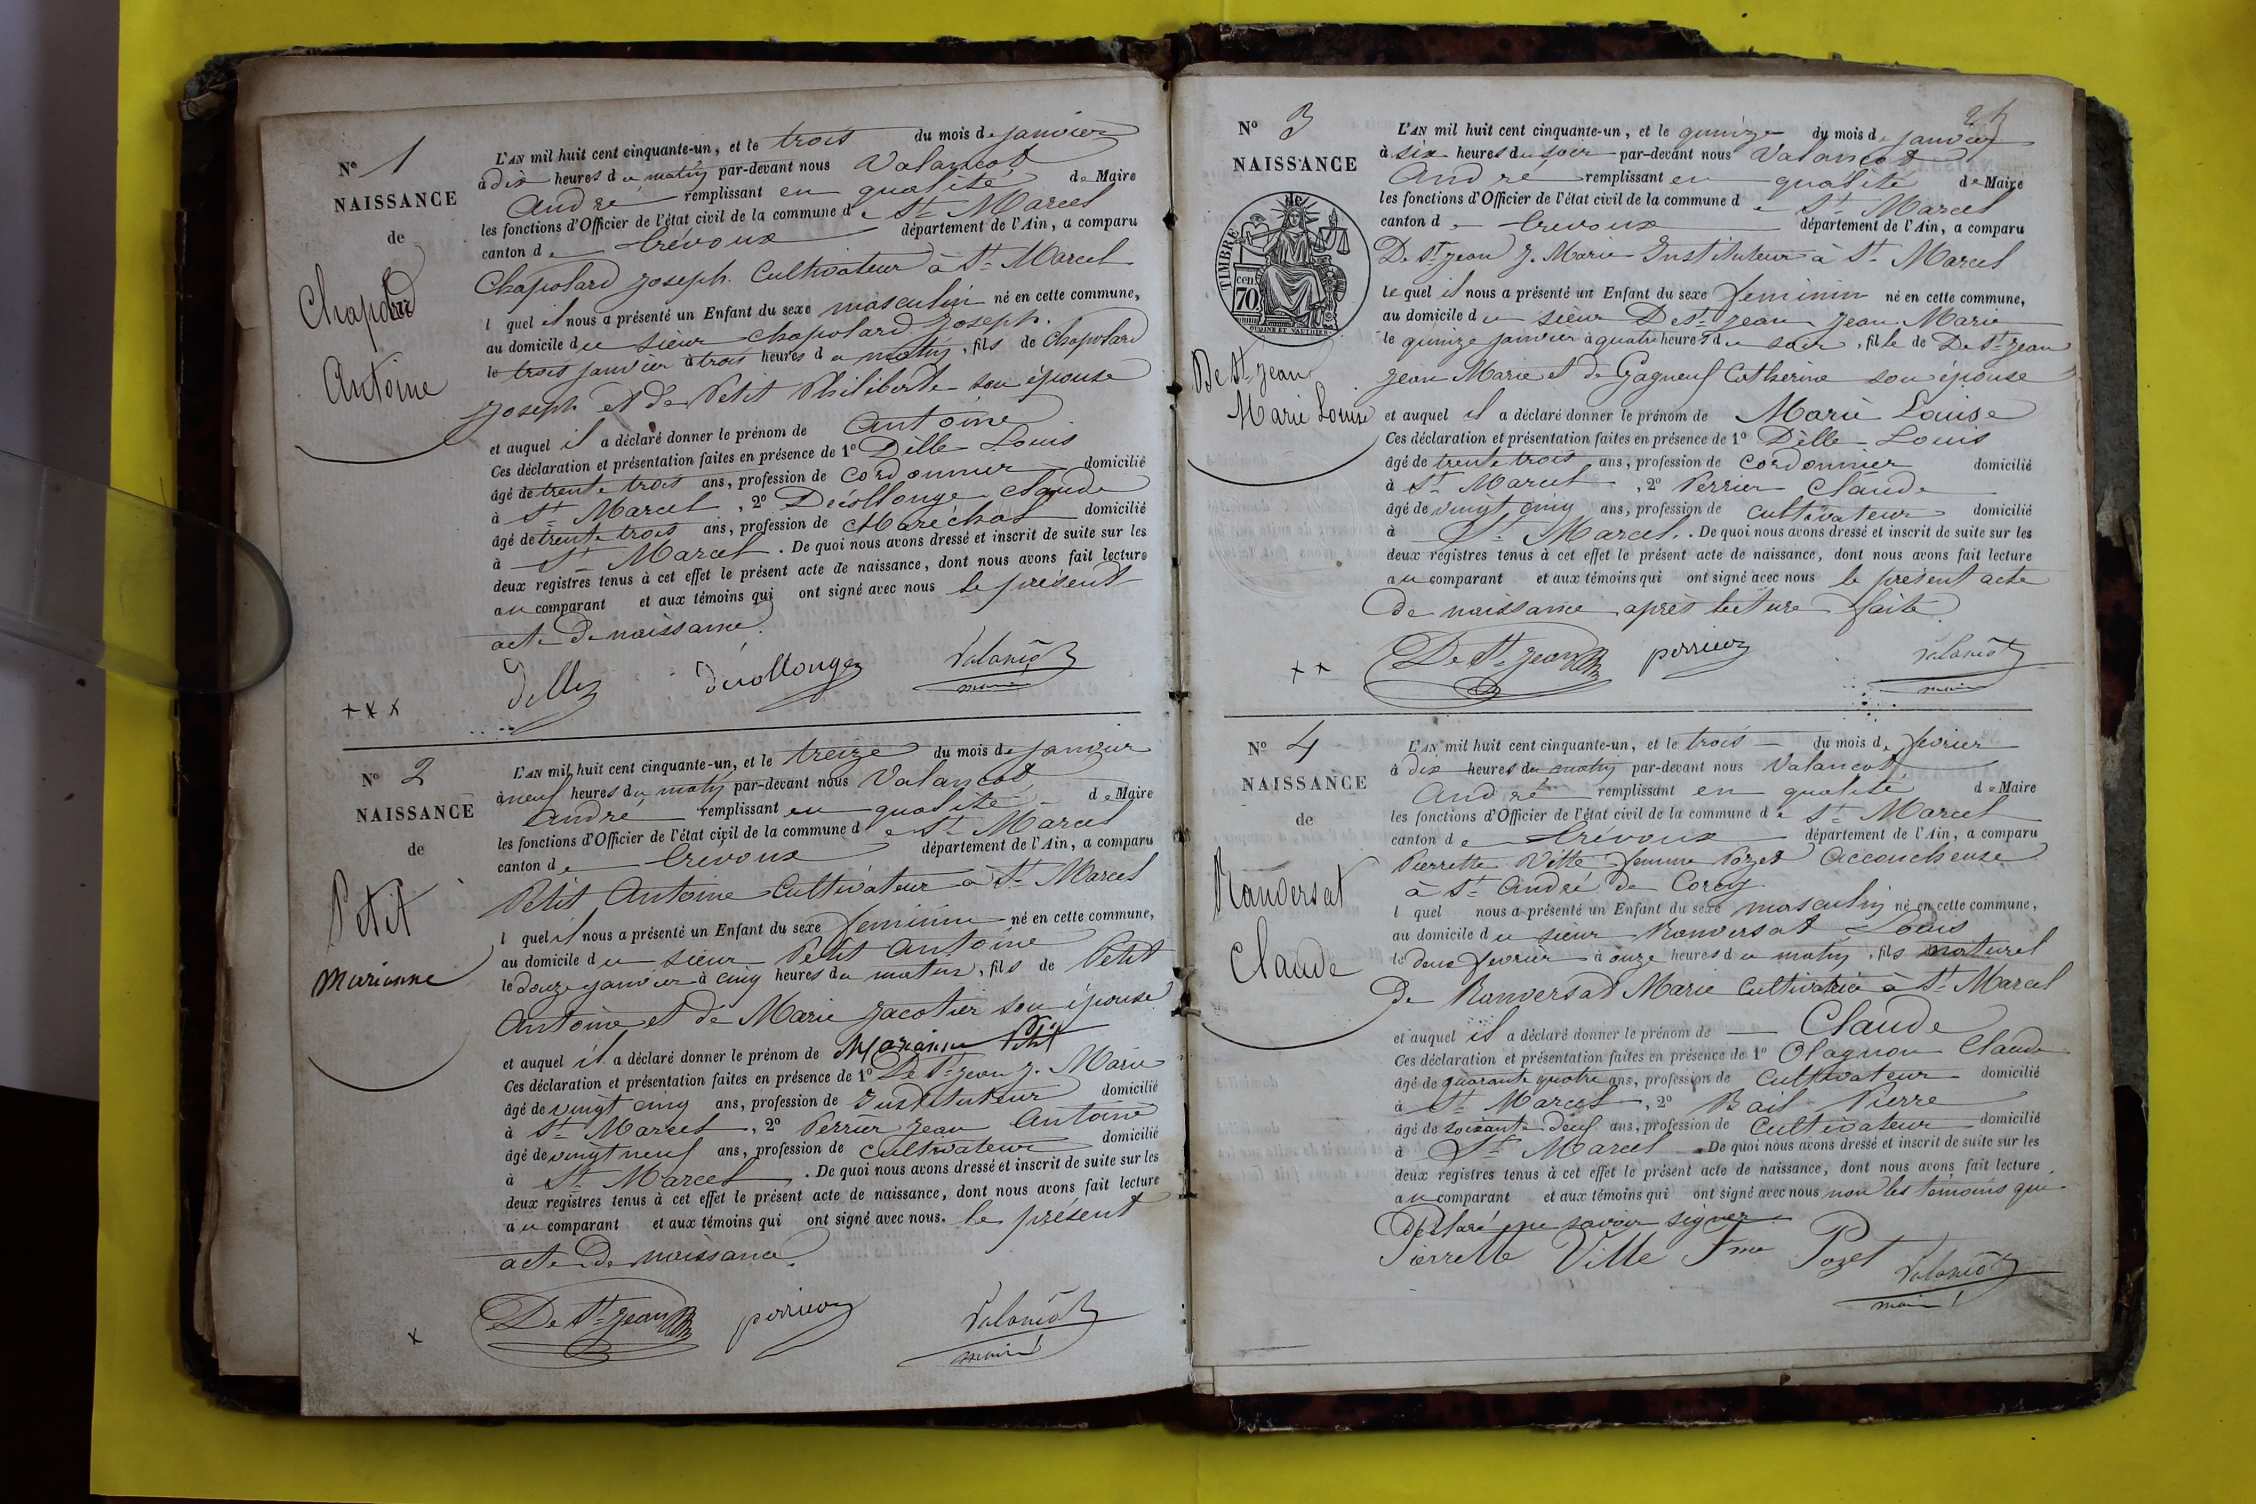 N° 1
NAISSANCE
de
Chapolard
Antoine
L'AN mil huit cent cinquante-un, et le trois du mois de janvier
à dix heures du matin par-devant nous Valancot
André remplissant en qualité de Maire
les fonctions d'Officier de l'état civil de la commune de St Marcel
canton de Trévoux département de l'Ain, a comparu
Chapolard Joseph Cultivateur à St Marcel
l quel il nous a présenté un Enfant du sexe masculin né en cette commune,
au domicile du sieur Chapolard Joseph.
le trois janvier à trois heures du matin, fils de Chapolard
Joseph et de Petit Philiberte son épouse
et auquel il a déclaré donner le prénom de Antoine
Ces déclaration et présentation faites en présence de 1° Dèlle Louis
âgé de trente trois ans, profession de Cordonnier domicilié
à St Marcel, 2° Decollonge Claude
âgé de trente trois ans, profession de Maréchal domicilié
à St Marcel. De quoi nous avons dressé et inscrit de suite sur les
deux registres tenus à cet effet le présent acte de naissance, dont nous avons fait lecture
au comparant et aux témoins qui ont signé avec nous le présent
acte de naissance.
Delle decollonge Valancot
maire
+ x x
N° 2
NAISSANCE
de
Petit
Marianne
L'AN mil huit cent cinquante-un, et le treize du mois de janvier
à neuf heures du matin par-devant nous Valancot
André remplissant en qualité de Maire
les fonctions d'Officier de l'état civil de la commune de St Marcel
canton de Trévoux département de l'Ain, a comparu
Petit Antoine Cultivateur à St Marcel
l quel il nous a présenté un Enfant du sexe feminin né en cette commune,
au domicile du sieur Petit Antoine
le douze janvier à cinq heures du matin, fils de Petit
Antoine et de Marie Jacotier son épouse
et auquel il a déclaré donner le prénom de Marianne Petit
Ces déclaration et présentation faites en présence de 1° De St Jean J. Marie
âgé de vingt cinq ans, profession de Instituteur domicilié
à St Marcel, 2° Perrier Jean Antoine
âgé de vingt neuf ans, profession de Cultivateur domicilié
à St Marcel. De quoi nous avons dressé et inscrit de suite sur les
deux registres tenus à cet effet le présent acte de naissance, dont nous avons fait lecture
au comparant et aux témoins qui ont signé avec nous. le présent
acte de naissance.
De St Jean perrier Valancot
maire
x
N° 3
NAISSANCE
de
TIMBRE
70 cen.
De St Jean
Marie Louise
L'AN mil huit cent cinquante-un, et le quinze du mois de janvier
à six heures du soir par-devant nous Valancot
André remplissant en qualité de Maire
les fonctions d'Officier de l'état civil de la commune de St Marcel
canton de Trevoux département de l'Ain, a comparu
De St Jean J. Marie Instituteur à St Marcel
le quel il nous a présenté un Enfant du sexe feminin né en cette commune,
au domicile du sieur De St Jean Jean Marie
le quinze janvier à quatre heures du soir, fille de De St Jean
Jean Marie et de Gagneux Catherine son épouse
et auquel il a déclaré donner le prénom de Marie Louise
Ces déclaration et présentation faites en présence de 1° Dèlle Louis
âgé de trente trois ans, profession de Cordonnier domicilié
à St Marcel, 2° Perrier Claude
âgé de vingt cinq ans, profession de cultivateur domicilié
à St Marcel. De quoi nous avons dressé et inscrit de suite sur les
deux registres tenus à cet effet le présent acte de naissance, dont nous avons fait lecture
au comparant et aux témoins qui ont signé avec nous le présent acte
de naissance après lecture faite.
De St Jean perrier Valancot
maire
x x
N° 4
NAISSANCE
de
Ranversat
Claude
L'AN mil huit cent cinquante-un, et le trois du mois de fevrier
à dix heures du matin par-devant nous Valancot
André remplissant en qualité de Maire
les fonctions d'Officier de l'état civil de la commune de St Marcel
canton de Trévoux département de l'Ain, a comparu
Pierrette Vitte femme Pozet Accoucheuse
à St André de Corcy
l quel nous a présenté un Enfant du sexe masculin né en cette commune,
au domicile du sieur Ranversat Louis
le deux fevrier à onze heures du matin, fils naturel
de Ranversat Marie Cultivatrice à St Marcel
et auquel il a déclaré donner le prénom de Claude
Ces déclaration et présentation faites en présence de 1° Olagnon Claude
âgé de quarante quatre ans, profession de Cultivateur domicilié
à St Marcel, 2° Bail Pierre
âgé de soixante deux ans, profession de Cultivateur domicilié
à St Marcel. De quoi nous avons dressé et inscrit de suite sur les
deux registres tenus à cet effet le présent acte de naissance, dont nous avons fait lecture
au comparant et aux témoins qui ont signé avec nous non les témoins qui
déclaré ne savoir signer
Pierrette Vitte fme Pozet Valancot
maire